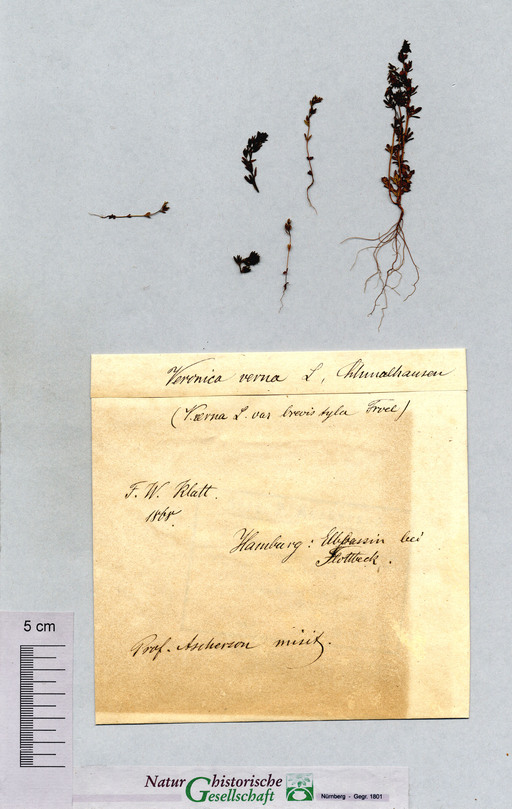 Veronica verna L., Schmalhausen
(V. verna L. var brevistyla Froel)
F. W. Klatt.
Hamburg: Elbbassin bei
Flottbeck.
Prof. Ascherson misit.
5 cm
Naturhistorische
Gesellschaft
Nürnberg - Gegr. 1801